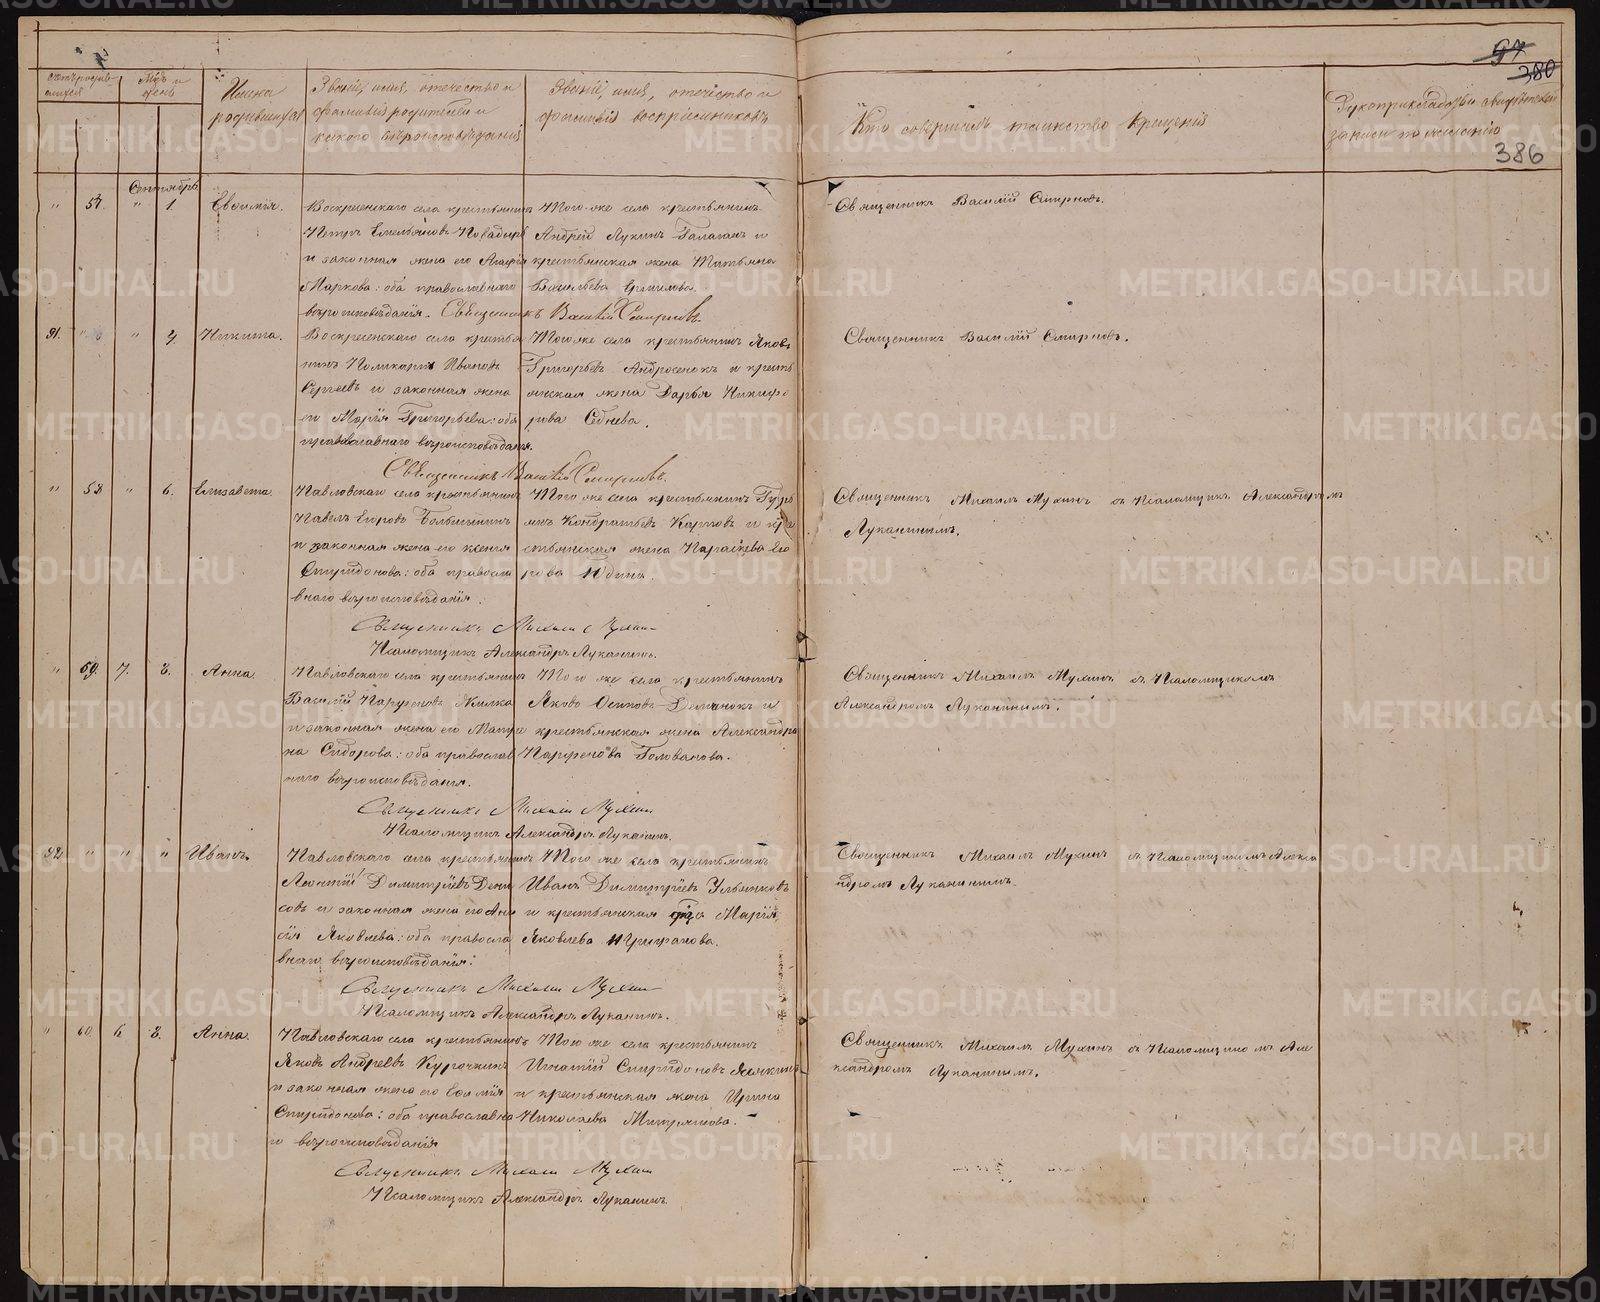 97
380
386
Счетъ родив-
шихся
Мѣс. и
день
Имена
родившихся
Званіе, имя, отчество и
фамилія родителей и
какого вѣроисповѣданія
Званіе, имя, отчество и
фамилія воспріемниковъ
Кто совершалъ таинство крещенія
Рукоприкладство свидѣтелей
записи по желанію
Сентябрь
" 57. " 1. Евфимія.
Воскресенскаго села крестьянинъ
Петръ Емельяновъ
и законная жена его Агафія
Маркова: оба православнаго
вѣроисповѣданія. Священникъ Василій Смирновъ.
Того же села крестьянинъ
Андрей Лукинъ Галаганъ и
крестьянская жена Татьяна
Васильева Ермилова.
Священникъ Василій Смирновъ.
51. " " 4. Никита.
Воскресенскаго села крестья
нинъ Поликарпъ Ивановъ
Сергеевъ и законная жена
его Марія Григорьева: оба
православнаго вѣроисповѣданія.
Священникъ Василій Смирновъ.
Того же села крестьянинъ Яковъ
Григорьевъ Андросенокъ и кресть
янская жена Дарья Никифо
рова
Священникъ Василій Смирновъ.
" 58 " 6. Елизавета.
Павловскаго села крестьянинъ
Павелъ Егоровъ
и законная жена его Ксенія
Спиридонова: оба правосла
внаго вѣроисповѣданія.
Священникъ Михаилъ Мухинъ
Псаломщикъ Александръ Луканинъ.
Того же села крестьянинъ Гурь
янъ Кондратьевъ Карповъ и кре
стьянская жена Параскева Его
рова Юдина.
Священникъ Михаилъ Мухинъ съ Псаломщик. Александромъ
Луканинымъ.
" 59. 7. 8. Анна.
Павловскаго села крестьянинъ
Василій Жилка
и законная жена его Матре
на Сидорова: оба православ
наго вѣроисповѣданія.
Священникъ Михаилъ Мухинъ
Псаломщикъ Александръ Луканинъ.
Того же села крестьянинъ
Яковъ Осиповъ Демчнокъ и
крестьянская жена Александра
Парфенова Голованова.
Священникъ Михаилъ Мухинъ съ Псаломщикомъ
Александромъ Луканинымъ.
52 " " " Иванъ.
Павловскаго села крестьянинъ
Леонтій Димитріевъ Дени
совъ и законная жена его Ани
сія Яковлева: оба правосла
внаго вѣроисповѣданія:
Священникъ Михаилъ Мухинъ
Псаломщикъ Александръ Луканинъ.
Того же села крестьянинъ
Иванъ Димитріевъ Ульянковъ
и крестьянская Марія
Яковлева
Священникъ Михаилъ Мухинъ съ Псаломщикомъ Алекса
ндромъ Луканинымъ.
" 60. 6 8. Анна.
Павловскаго села крестьянинъ
Яковъ Андреевъ Курочкинъ
и законная жена его Евфимія
Спиридонова: оба православна
го вѣроисповѣданія
Священникъ Михаилъ Мухинъ
Псаломщикъ Александръ Луканинъ.
Того же села крестьянинъ
Игнатій Спиридоновъ
и крестьянская жена Ирина
Николаева Митряшова.
Священникъ Михаилъ Мухинъ съ Псаломщикомъ Але
ксандромъ Луканинымъ.
METRIKI.GASO-URAL.RU